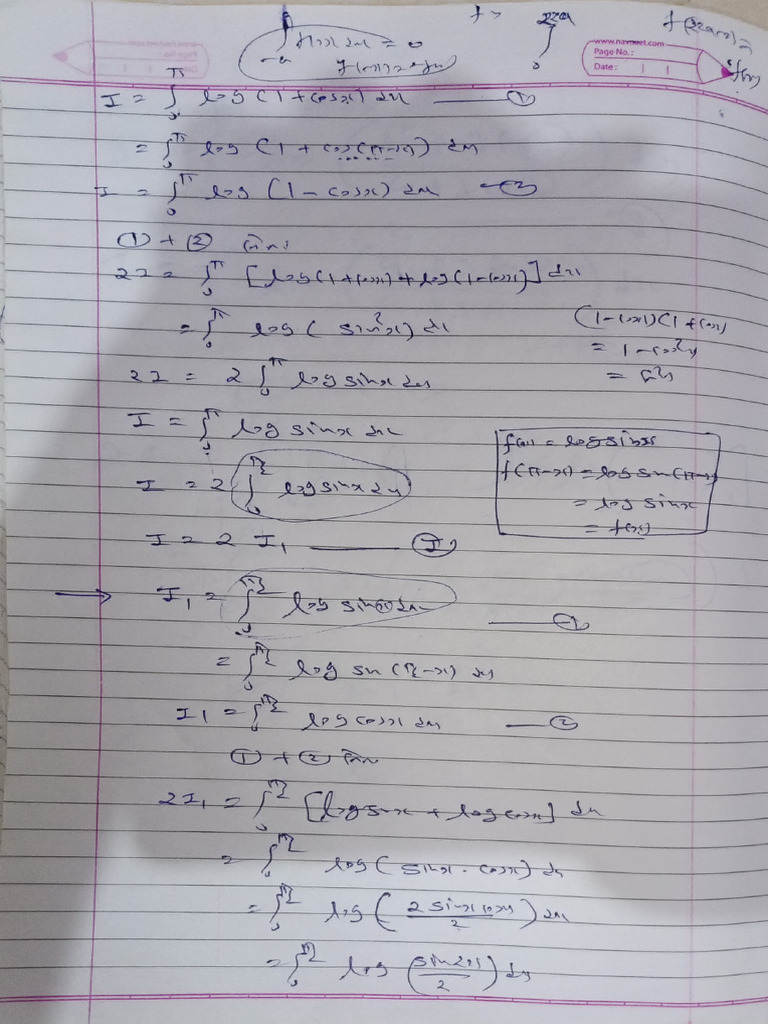 ∫₋ₐ f(x) dx = 0
www.navneet.com
Page No.:
Date:
I = ∫₀^π log (1 + cosx) dx —— ①
= ∫₀^π log (1 + cos(π-x)) dx
I = ∫₀^π log (1 - cosx) dx — ②
① + ②
2I = ∫₀^π [log(1+cosx) + log(1-cosx)] dx
= ∫₀^π log ( sin²x) dx
(1-cosx)(1+cosx)
= 1-cos²x
= sin²x
2I = 2 ∫₀^π log sinx dx
I = ∫₀^π log sinx dx
I = 2 ∫₀^π/2 log sinx dx
f(x) = log sinx
f(π-x) = log sin(π-x)
= log sinx
= f(x)
I = 2 I₁ —— Ⓘ
→ I₁ = ∫₀^π/2 log sinx dx —— ①
= ∫₀^π/2 log sin (π/2-x) dx
I₁ = ∫₀^π/2 log cosx dx — ②
① + ②
2I₁ = ∫₀^π/2 [log sinx + log cosx] dx
= ∫₀^π/2 log ( sinx . cosx) dx
= ∫₀^π/2 log ( 2 sinx cosx / 2 ) dx
= ∫₀^π/2 log ( sin2x / 2 ) dx